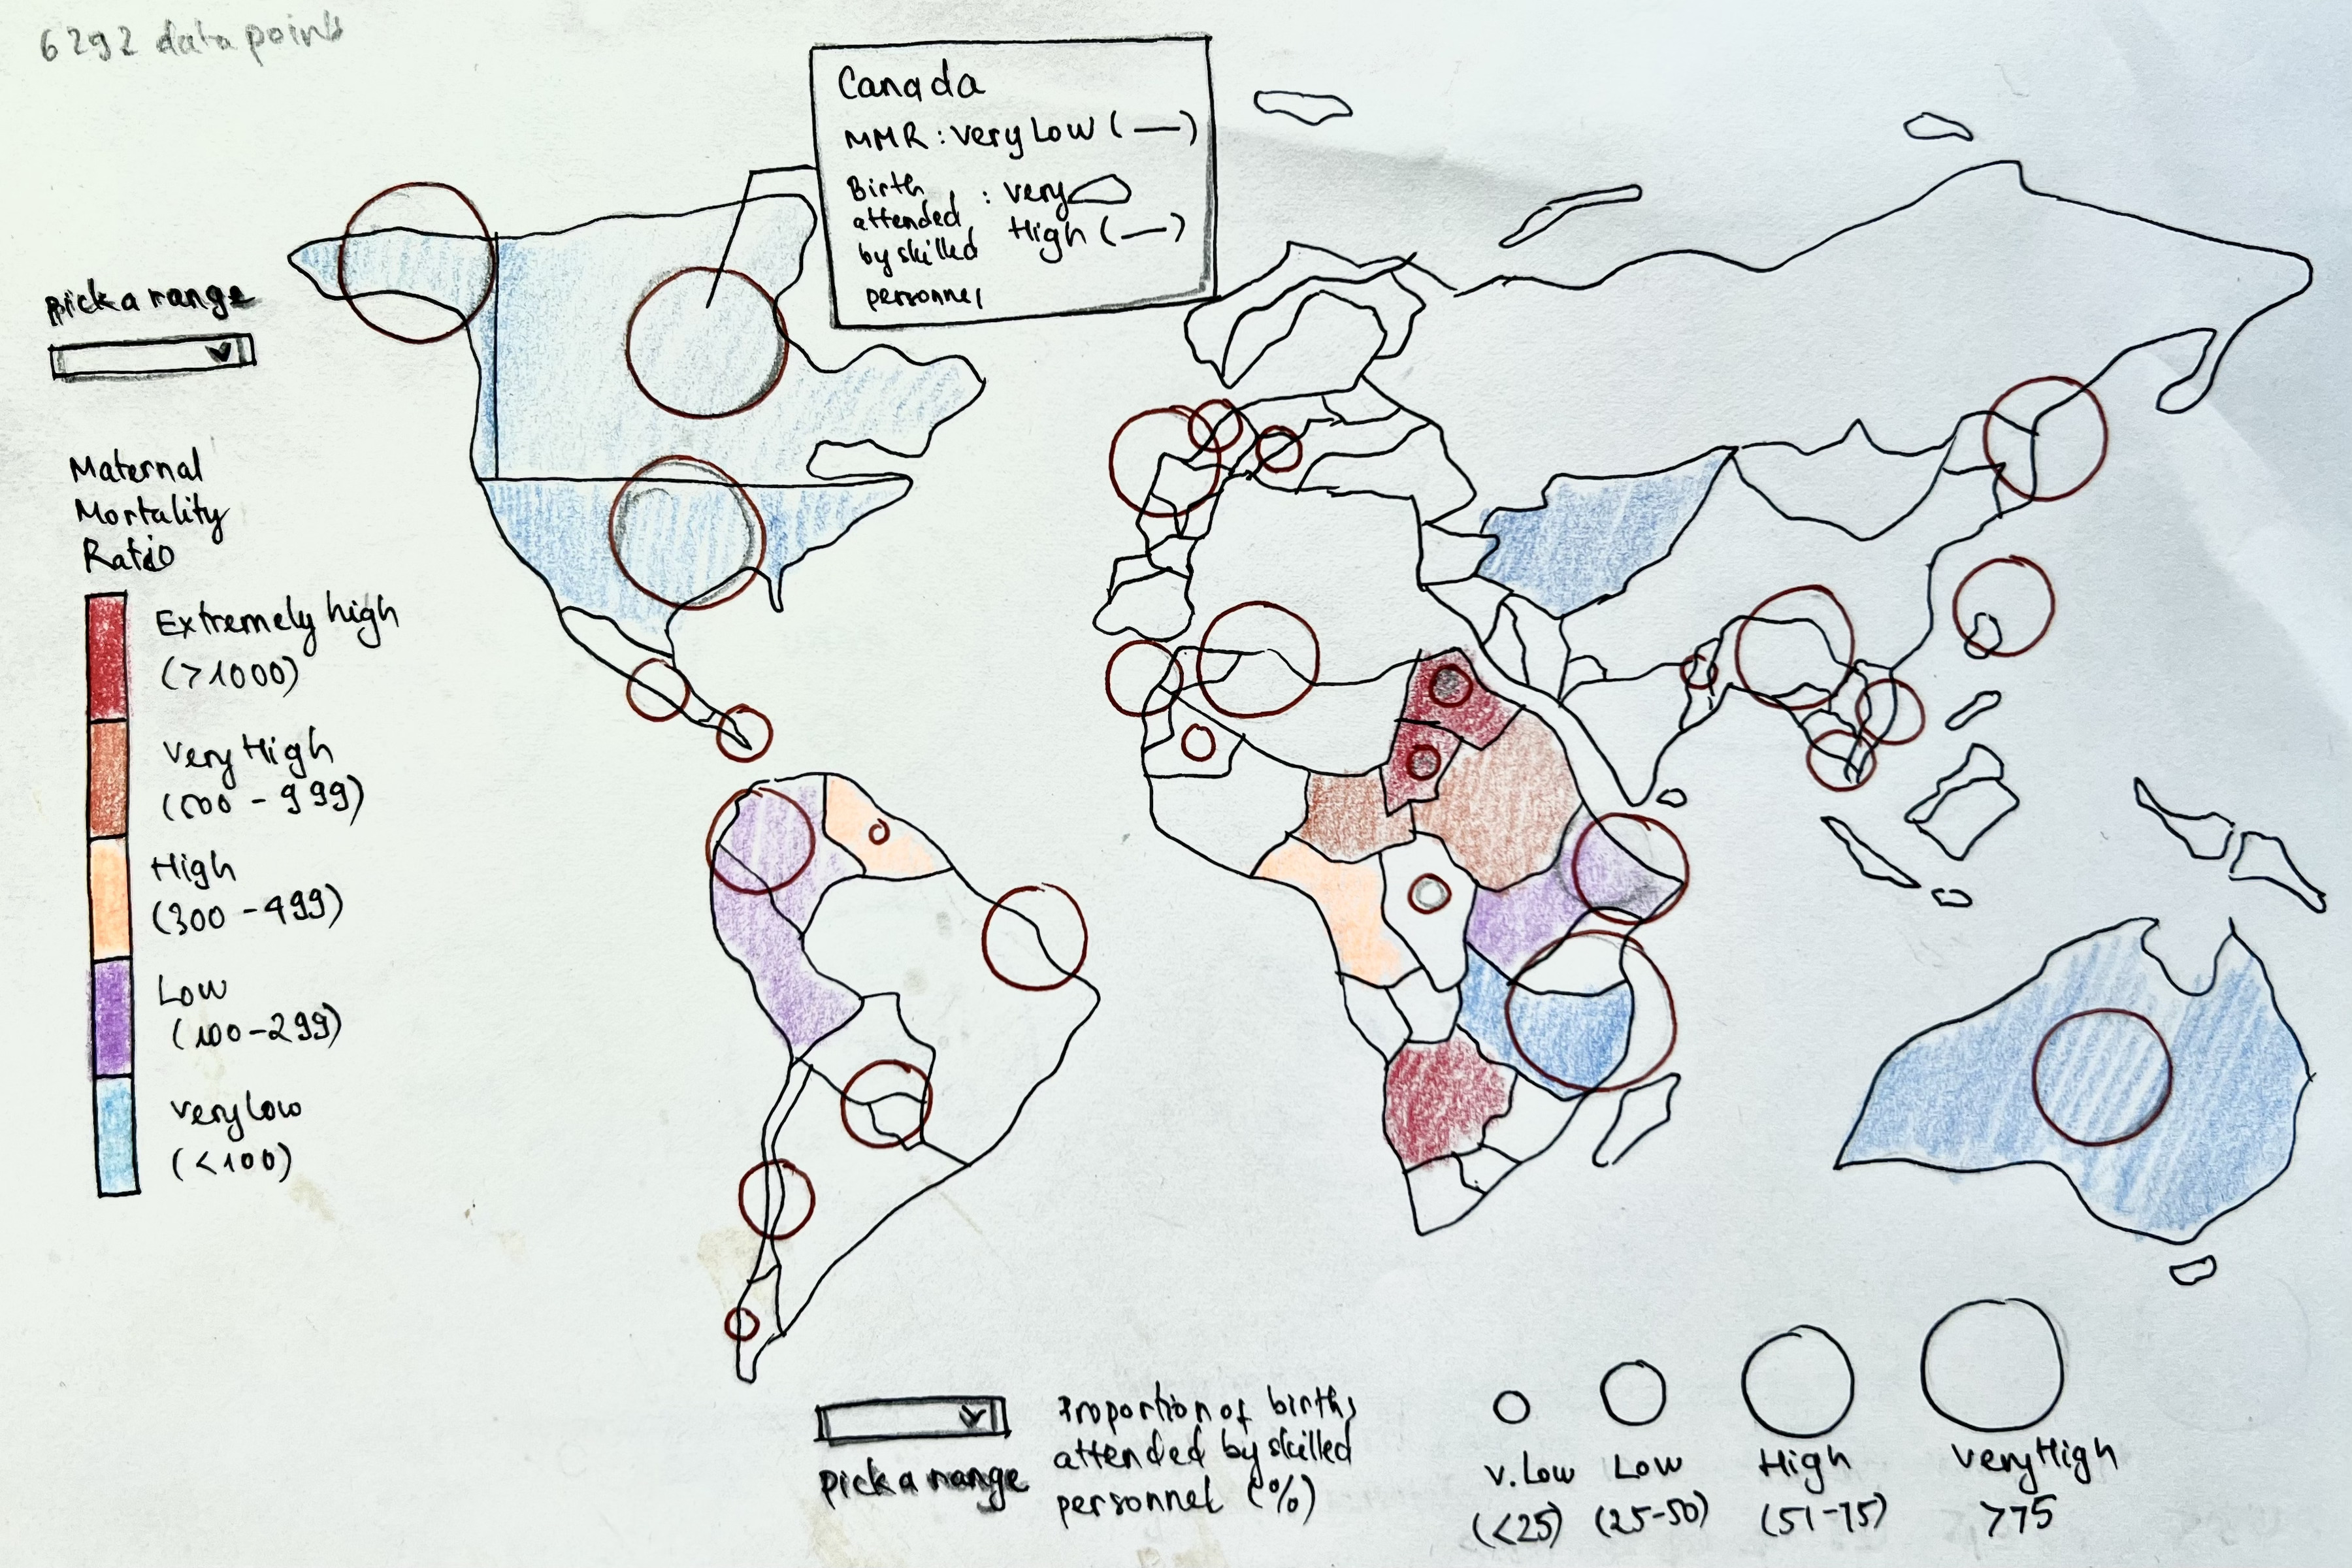 6292 data points
Canada
MMR : Very Low ( — )
Birth attended by skilled personnel : very High ( — )
pick a range
Maternal
Mortality
Ratio
Extremely high
(>1000)
Very High
(500 - 999)
High
(300 - 499)
Low
(100 - 299)
very low
(<100)
pick a range
Proportion of births
attended by skilled
personnel (%)
v. Low
(<25)
Low
(25-50)
High
(51-75)
Very High
>75